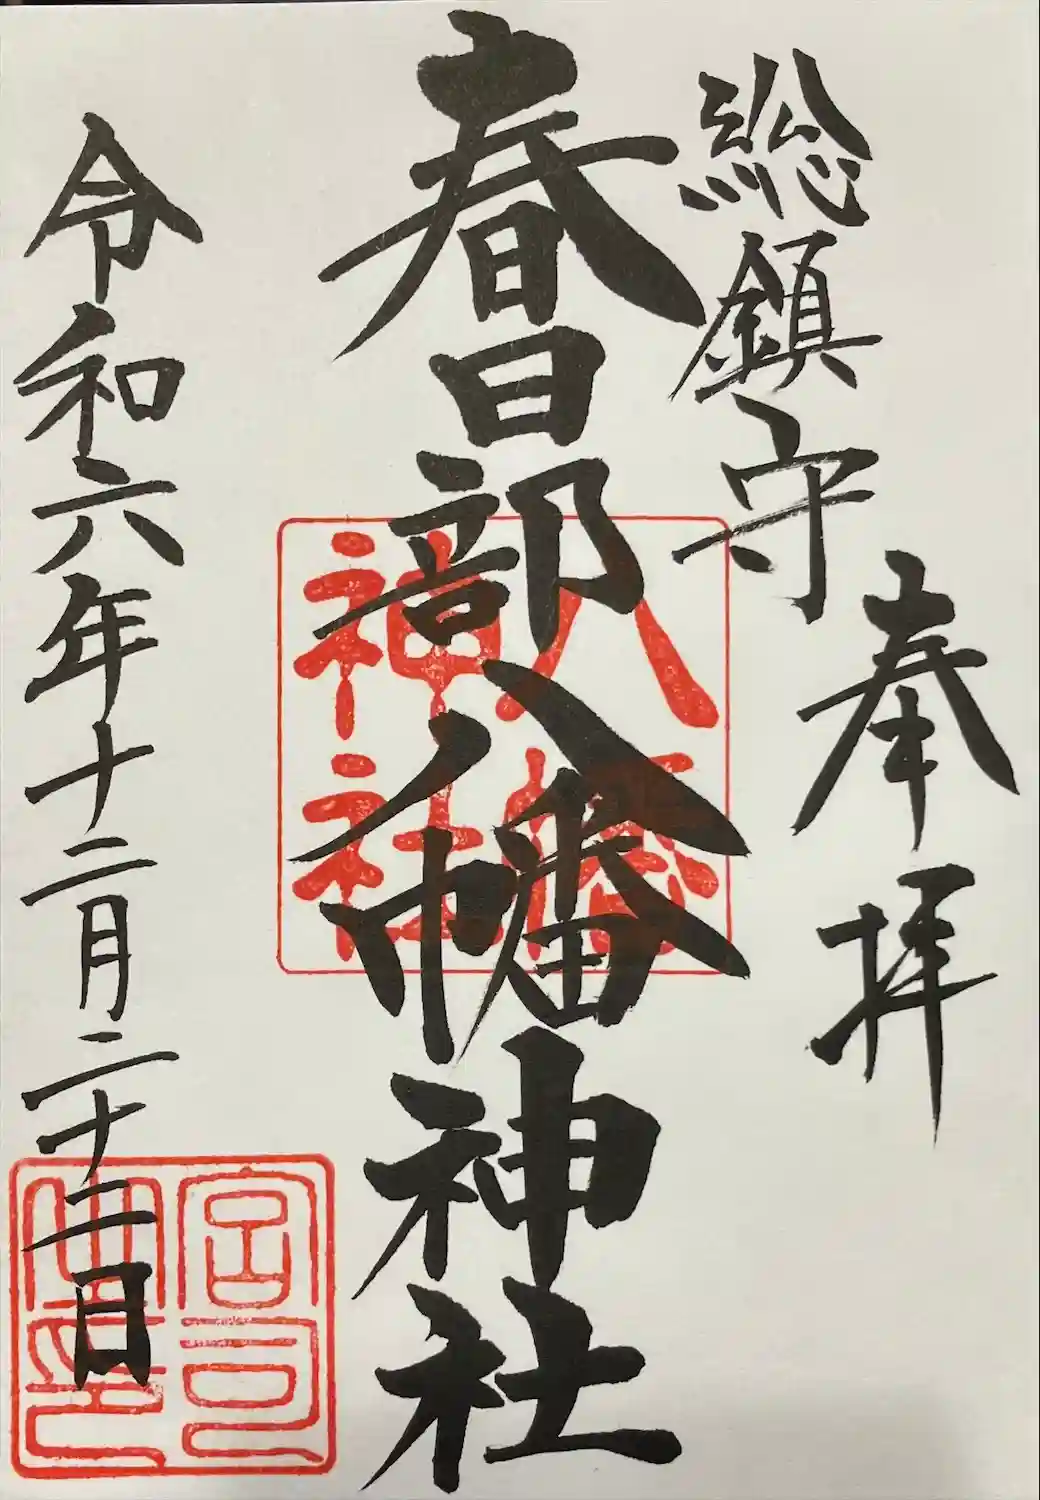 奉拝
総鎮守
春日部八幡神社
八幡
神社
令和六年十二月二十二日
宮司
之印